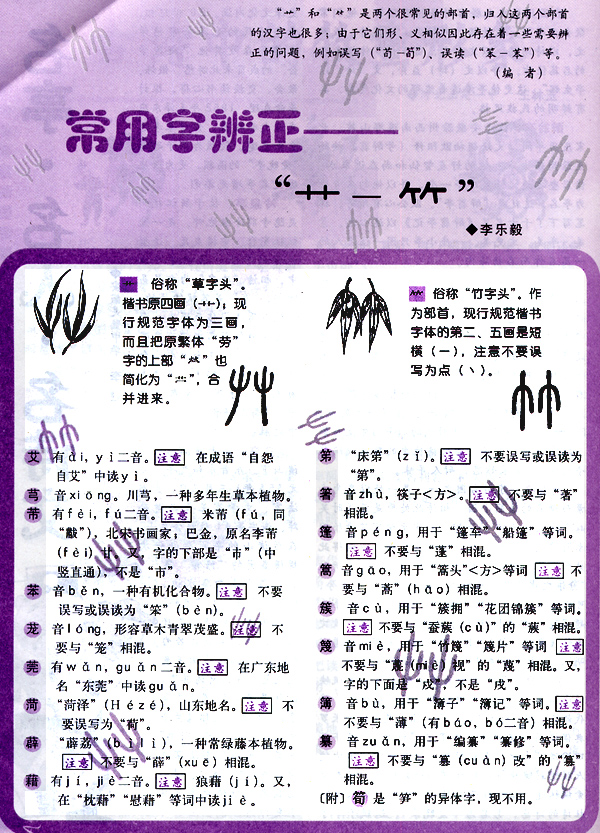 “艹”和“⺮”是两个很常见的部首，归入这两个部首
的汉字也很多；由于它们形、义相似因此存在着一些需要辨
正的问题，例如误写（“苘－筍”）、误读（“笨－苯”）等。
（编 者）
常用字辨正——
“艹—⺮”
◆李乐毅
艹 俗称“草字头”。
楷书原四画（艹）；现
行规范字体为三画，
而且把原繁体“劳”
字的上部“炏”也
简化为“艹”，合
并进来。
艾 有ài，yì二音。注意 在成语“自怨
自艾”中读yì。
芎 音xiōng。川芎，一种多年生草本植物。
芾 有fèi，fú二音。注意 米芾（fú，同
“黻”），北宋书画家；巴金，原名李芾
（fèi）甘。又，字的下部是“巿”（中
竖直通），不是“市”。
苯 音běn，一种有机化合物。注意 不要
误写或误读为“笨”（bèn）。
茏 音lóng，形容草木青翠茂盛。注意 不
要与“笼”相混。
莞 有wǎn，guǎn二音。注意 在广东地
名“东莞”中读guǎn。
菏 “菏泽”（Hézé），山东地名。注意 不
要误写为“荷”。
薜 “薜荔”（bìlì），一种常绿藤本植物。
注意 不要与“薛”（xuē）相混。
藉 有jí，jiè二音。注意 狼藉（jí）。又，
在“枕藉”“慰藉”等词中读jiè。
⺮ 俗称“竹字头”。作
为部首，现行规范楷书
字体的第二、五画是短
横（一），注意不要误
写为点（丶）。
笫 “床笫”（zǐ）。注意 不要误写或误读为
“第”。
箸 音zhù，筷子<方>。注意 不要与“著”
相混。
篷 音péng，用于“篷车”“船篷”等词。
注意 不要与“蓬”相混。
篙 音gāo，用于“篙头”<方>等词 注意 不
要与“蒿”（hāo）相混。
簇 音cù，用于“簇拥”“花团锦簇”等词。
注意 不要与“蚕蔟（cù）”的“蔟”相混。
篾 音miè，用于“竹篾”“篾片”等词 注意
不要与“蔑（miè）视”的“蔑”相混。又，
字的下面是“戍”，不是“戌”。
簿 音bù，用于“簿子”“簿记”等词。注意
不要与“薄”（有báo，bó二音）相混。
纂 音zuǎn，用于“编纂”“纂修”等词。
注意 不要与“篡（cuàn）改”的“篡”
相混。
〔附〕筍 是“笋”的异体字，现不用。